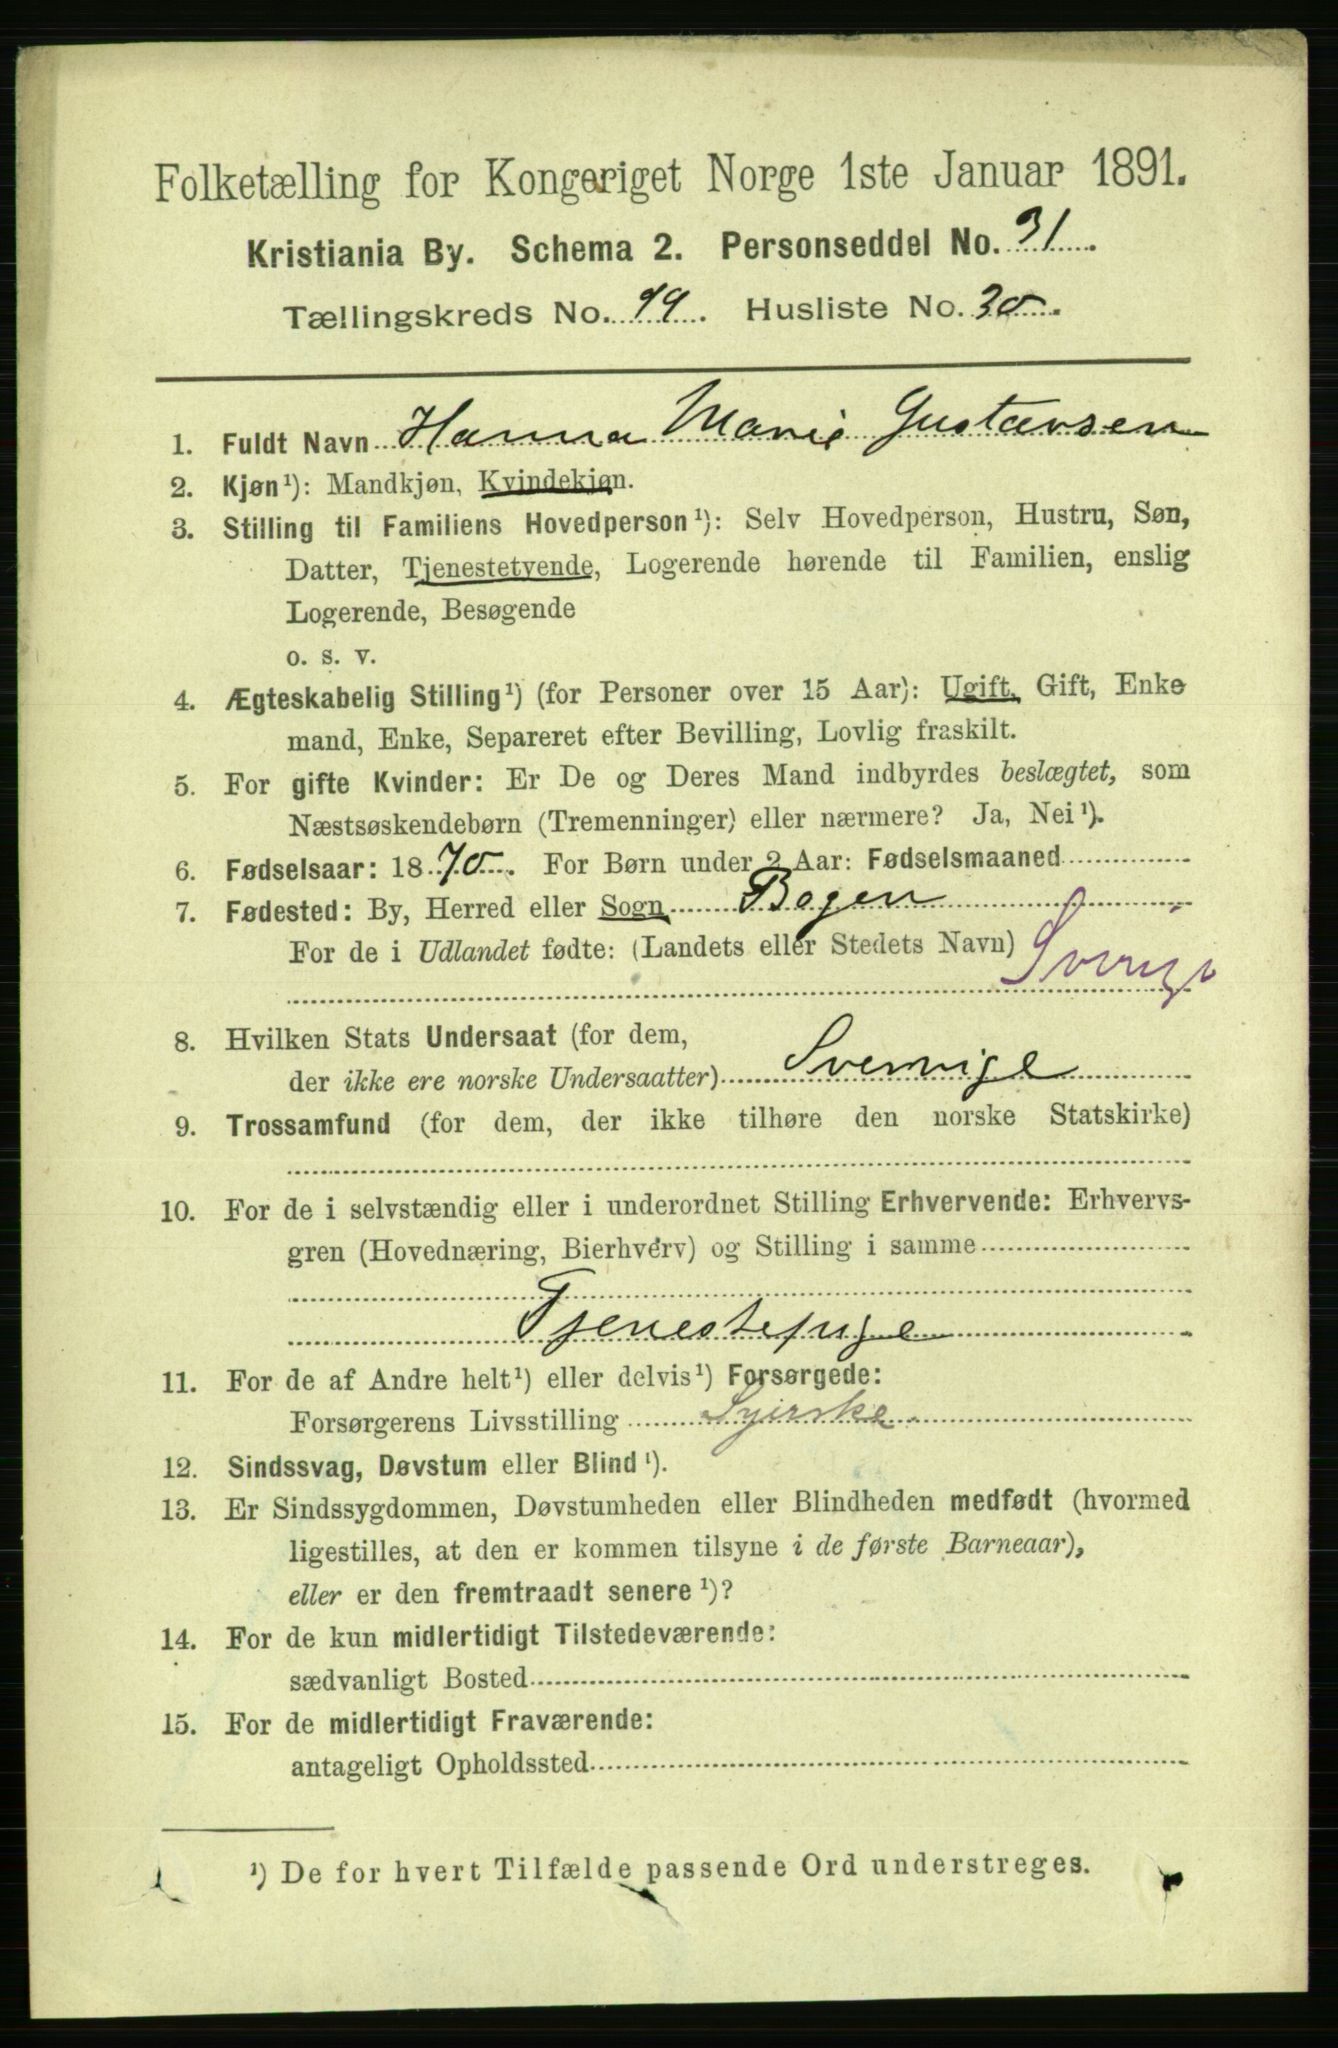 Folketælling for Kongeriget Norge 1ste Januar 1891.
Kristiania By. Schema 2. Personseddel No. 31.
Tællingskreds No. 99. Husliste No. 30.
1. Fuldt Navn Hanna Marie Gustavsen
2. Kjøn¹): Mandkjøn, Kvindekjøn.
3. Stilling til Familiens Hovedperson¹): Selv Hovedperson, Hustru, Søn,
Datter, Tjenestetyende, Logerende hørende til Familien, enslig
Logerende, Besøgende
o. s. v.
4. Ægteskabelig Stilling¹) (for Personer over 15 Aar): Ugift, Gift, Enke
mand, Enke, Separeret efter Bevilling, Lovlig fraskilt.
5. For gifte Kvinder: Er De og Deres Mand indbyrdes beslægtet, som
Næstsøskendebørn (Tremenninger) eller nærmere? Ja, Nei¹).
6. Fødselsaar: 1870. For Børn under 2 Aar: Fødselsmaaned
7. Fødested: By, Herred eller Sogn Bogen
For de i Udlandet fødte: (Landets eller Stedets Navn) Sverige
8. Hvilken Stats Undersaat (for dem,
der ikke ere norske Undersaatter) Sverrige
9. Trossamfund (for dem, der ikke tilhøre den norske Statskirke)
10. For de i selvstændig eller i underordnet Stilling Erhvervende: Erhvervs-
gren (Hovednæring, Bierhverv) og Stilling i samme
Tjenestepige
11. For de af Andre helt¹) eller delvis¹) Forsørgede:
Forsørgerens Livsstilling Syerske
12. Sindssvag, Døvstum eller Blind¹).
13. Er Sindssygdommen, Døvstumheden eller Blindheden medfødt (hvormed
ligestilles, at den er kommen tilsyne i de første Barneaar),
eller er den fremtraadt senere¹)?
14. For de kun midlertidigt Tilstedeværende:
sædvanligt Bosted
15. For de midlertidigt Fraværende:
antageligt Opholdssted
¹) De for hvert Tilfælde passende Ord understreges.